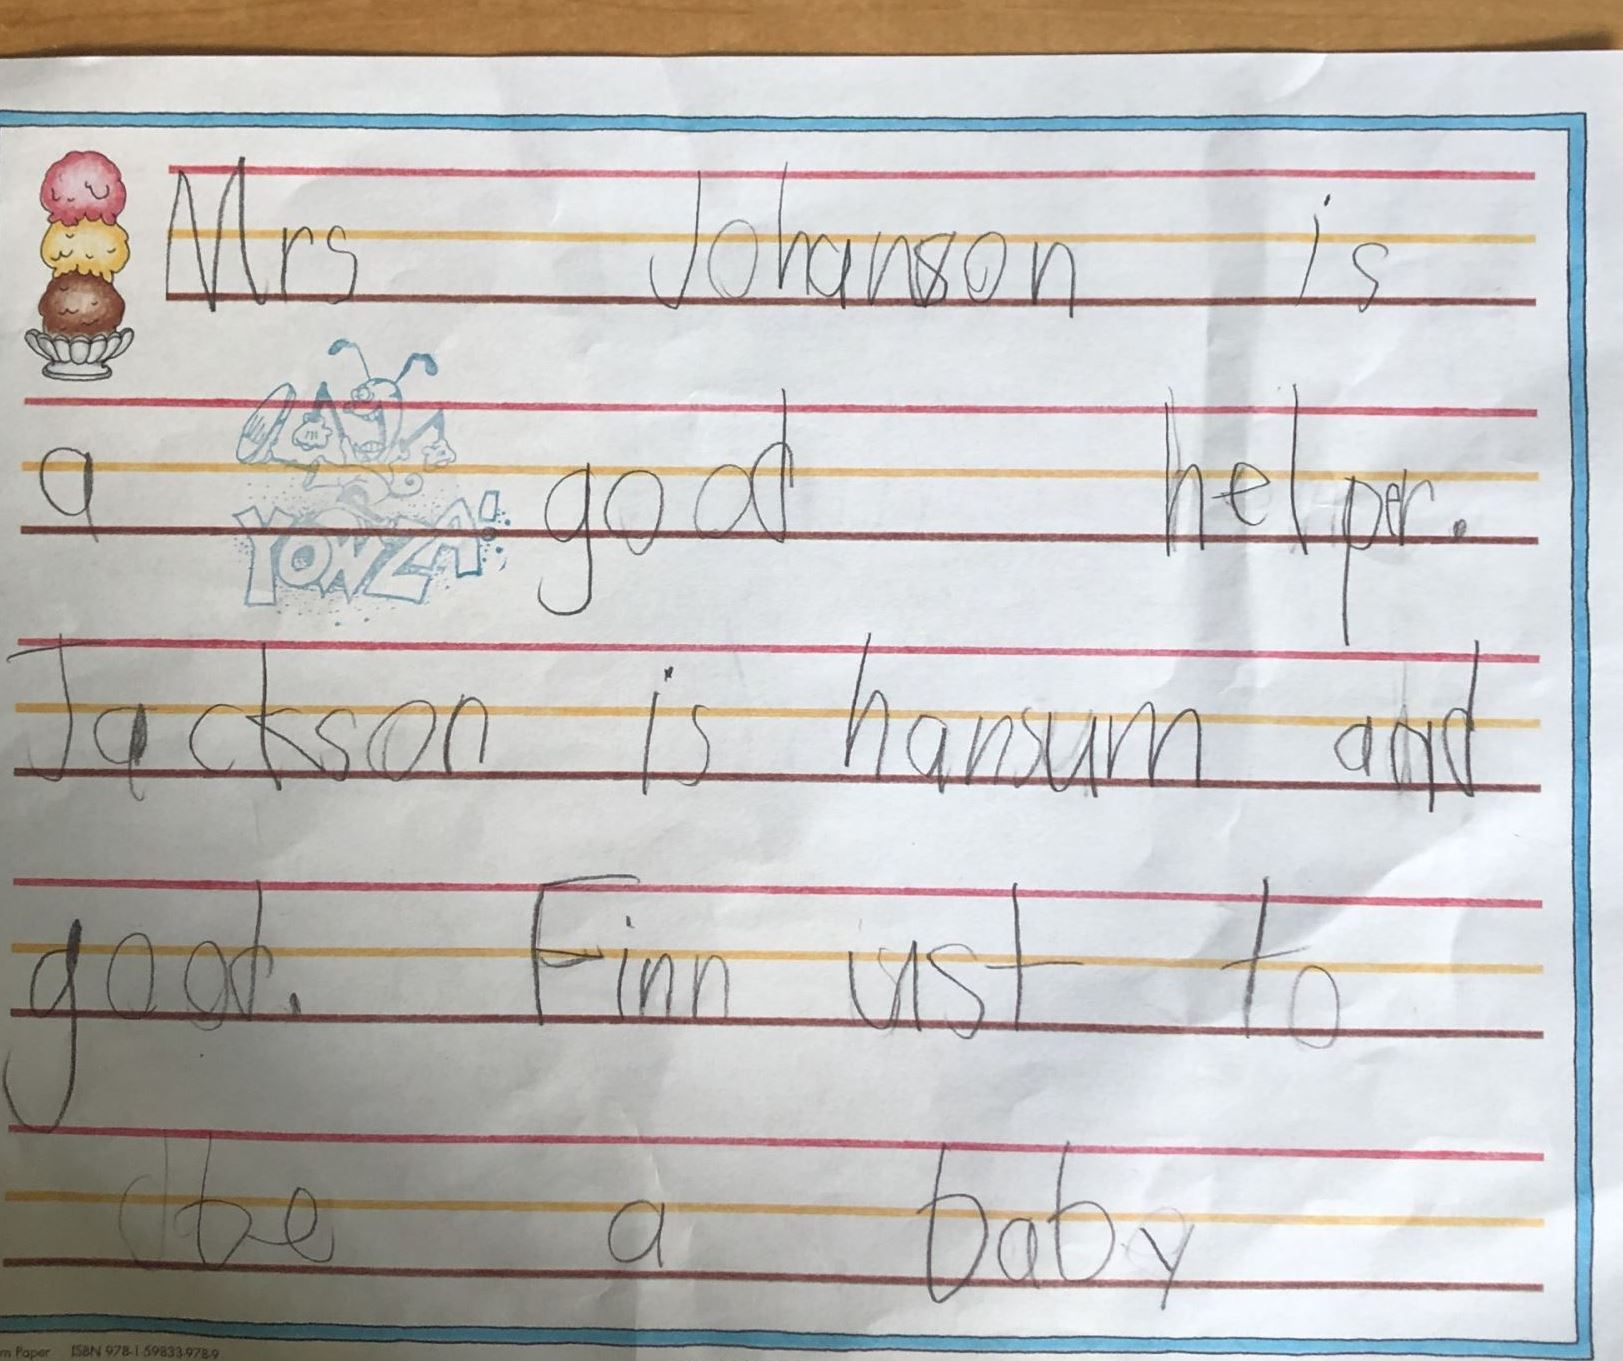 Mrs Johanson is
a good helper.
YOWZA!
Jackson is hansum and
good. Finn ust to
be a baby
m Paper ISBN 978-1-59833-978-9